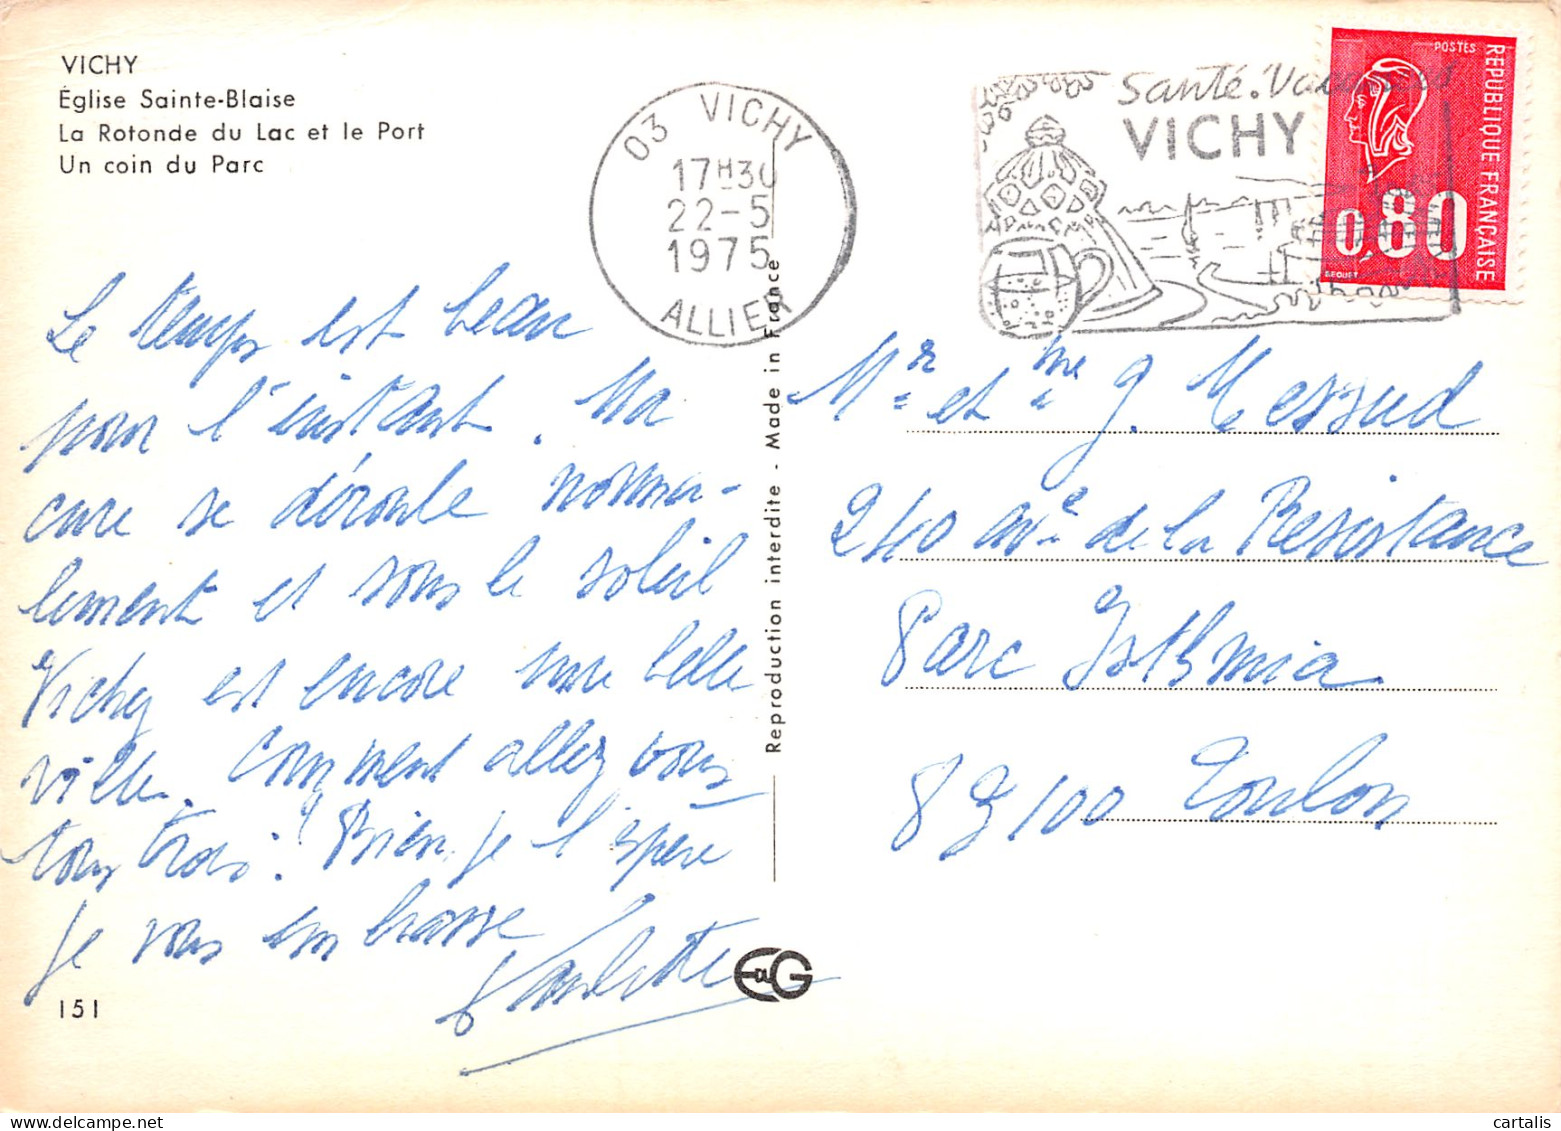 VICHY
Église Sainte-Blaise
La Rotonde du Lac et le Port
Un coin du Parc
03 VICHY
17H30
22-5
1975
ALLIER
Santé. Vacances
VICHY
POSTES
REPUBLIQUE FRANÇAISE
0,80
BEQUET
Le temps est beau
pour l'instant. Ma
cure se déroule norma-
lement et sous le soleil
Vichy est encore une belle
ville. Comment allez vous
tous trois? Bien, je l'espère
je vous embrasse
Paulette
151
Reproduction interdite - Made in France
EaG
Mr et Mme J. Messud
240 ave de la Resistance
Parc Isthmia
83100 Toulon
cartalis